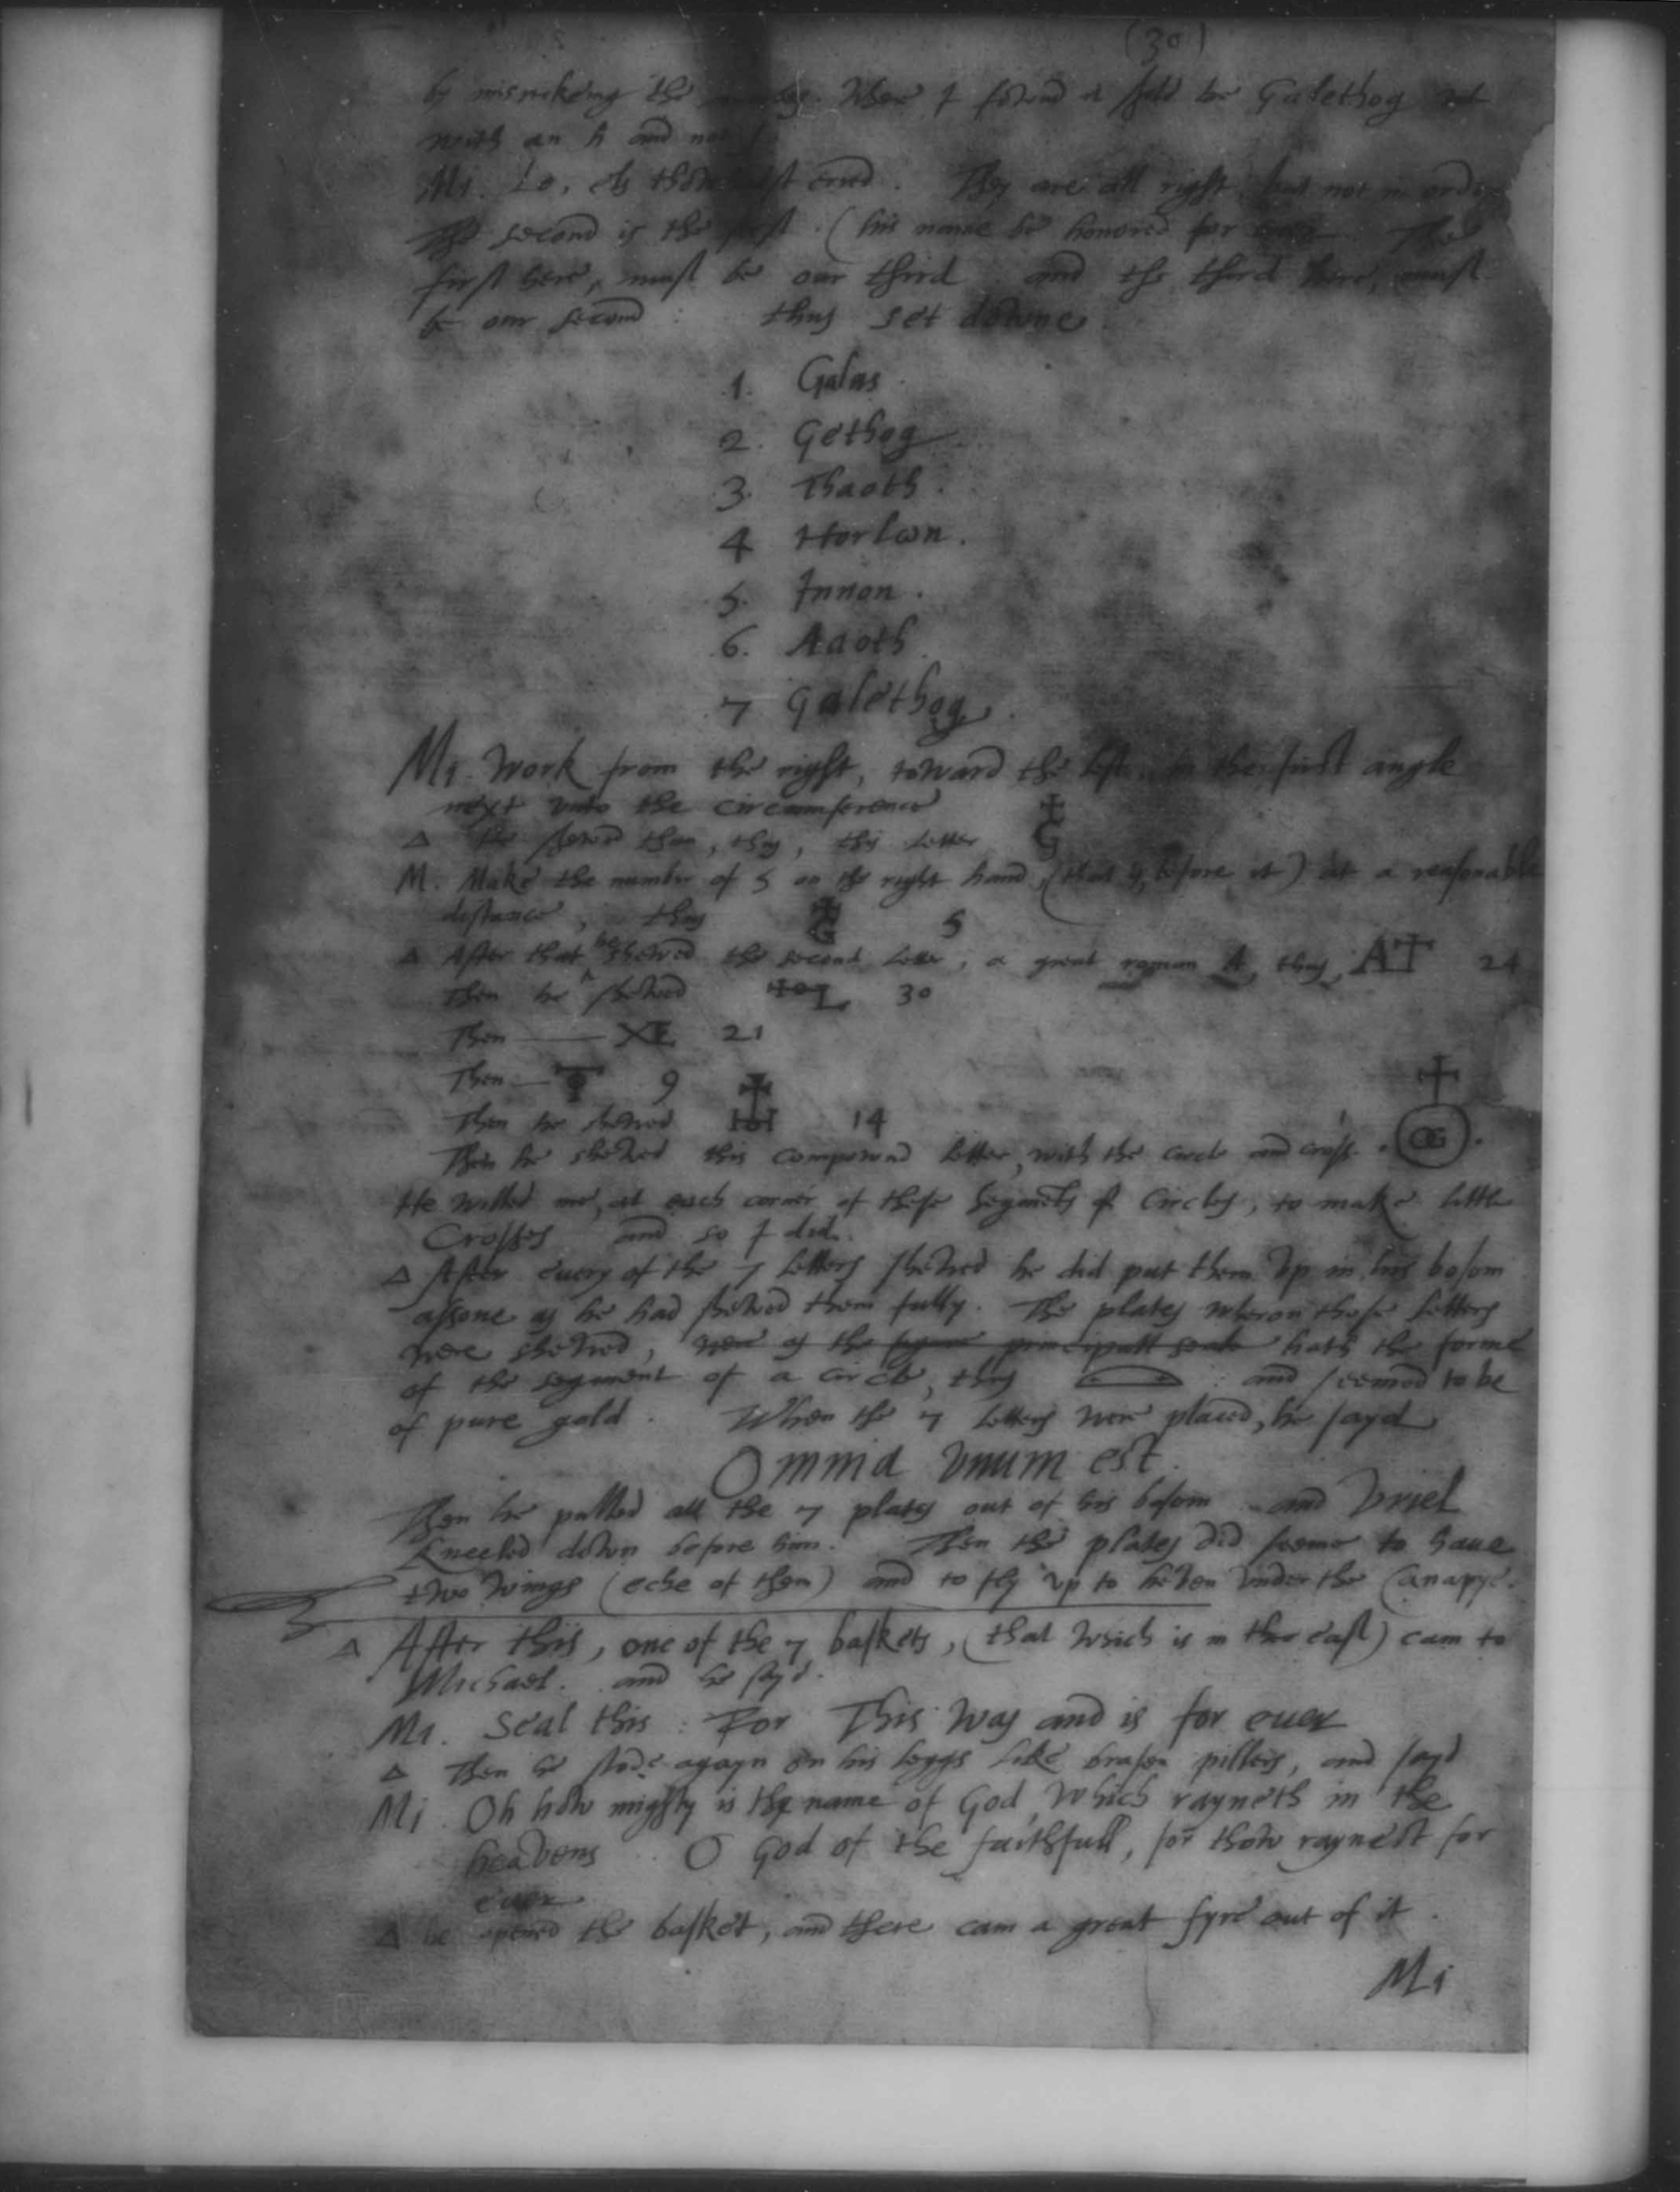 (30)
by misrekening the When I fownd it shold be Galethog
with an h and not
Mi. Lo, els thow erred. They are all right, but not in order
The second is the first. (his name be honored for ever The
first here, must be our third and the third here, must
be our second: thus set downe
1. Galas.
2. Gethog.
3. Thaoth.
4 Horlωn.
5. Innon.
6. Aaoth.
7 Galethog.
Mi. Work from the right, toward the left, in the first angle
next unto the circumference
Δ He shewed than, thus, this letter G
M. Make the number of 5 on the right hand, (that is, before it) at a reasonable
distance, thus G 5
Δ After that he shewed the second letter, a great roman A, thus, A 24
Then he shewed L 30
Then 21
Then 9
Then he shewed H 14
Then he shewed this compownd letter, with the circle and cross.
He willed me, at each corner of these Segments of Circles, to make little
Crosses and so I did.
Δ After every of the 7 letters shewed he did put them up in his bosom
assone as he had shewed them fully. The plates wheron those letters
were shewed, hath the forme
of the segment of a circle, thus : and seemed to be
of pure gold. When the 7 letters were placed, he sayd
Omnia unum est.
Then he pulled all the 7 plates out of his bosom and Uriel
kneeled down before him. Then the plates did seeme to have
two wings (eche of them) and to fly up to heven under the Canapye.
Δ After this, one of the 7 baskets, (that which is in the east) cam to
Michael. and he sayd.
Mi. Seal this: For This was and is for ever
Δ Then he stode agayn on his leggs like brasen pillers, and sayd
Mi. Oh how mighty is the name of God, which rayneth in the
heavens. O God of the faithfull, for thow raynest for
ever
Δ he opened the basket, and there cam a great fyre out of it.
Mi